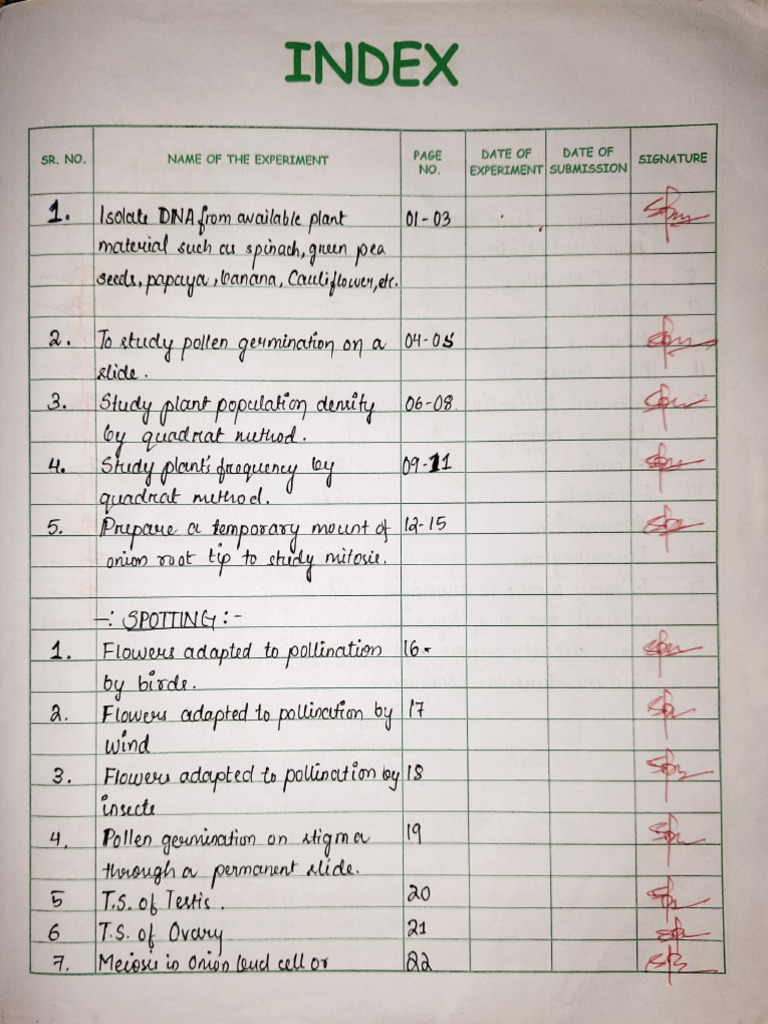 INDEX
SR. NO. NAME OF THE EXPERIMENT PAGE NO. DATE OF EXPERIMENT DATE OF SUBMISSION SIGNATURE
1. Isolate DNA from available plant 01-03
material such as spinach, green pea
seeds, papaya, banana, Cauliflower, etc.
2. To study pollen germination on a 04-05
slide.
3. Study plant population density 06-08
by quadrat method.
4. Study plant's frequency by 09-11
quadrat method.
5. Prepare a temporary mount of 12-15
onion root tip to study mitosis.
-: SPOTTING :-
1. Flowers adapted to pollination 16-
by birds.
2. Flowers adapted to pollination by 17
wind
3. Flowers adapted to pollination by 18
insects
4. Pollen germination on stigma 19
through a permanent slide.
5 T.S. of Testis. 20
6 T.S. of Ovary 21
7. Meiosis in Onion bud cell or 22